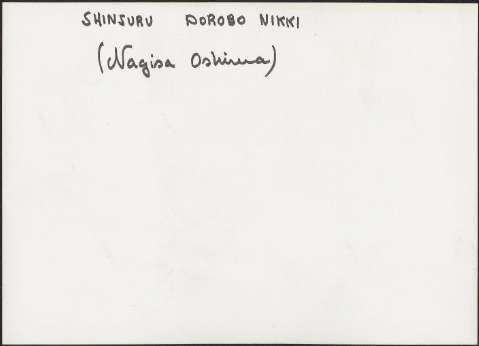 SHINSURU DOROBO NIKKI
(Nagisa Oshima)